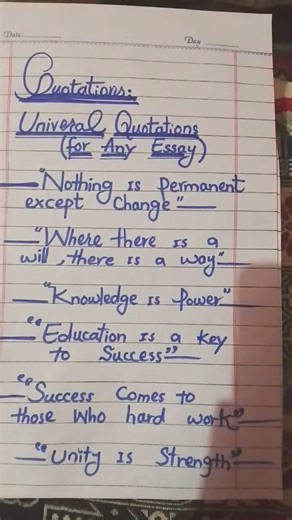 Date:
Day
Quotations:
Univeral Quotations
(for Any Essay)
"Nothing is permanent
except change"
"Where there is a
will, there is a way"
"Knowledge is power"
"Education is a key
to Success"
"Success comes to
those who hard work"
"Unity is Strength"